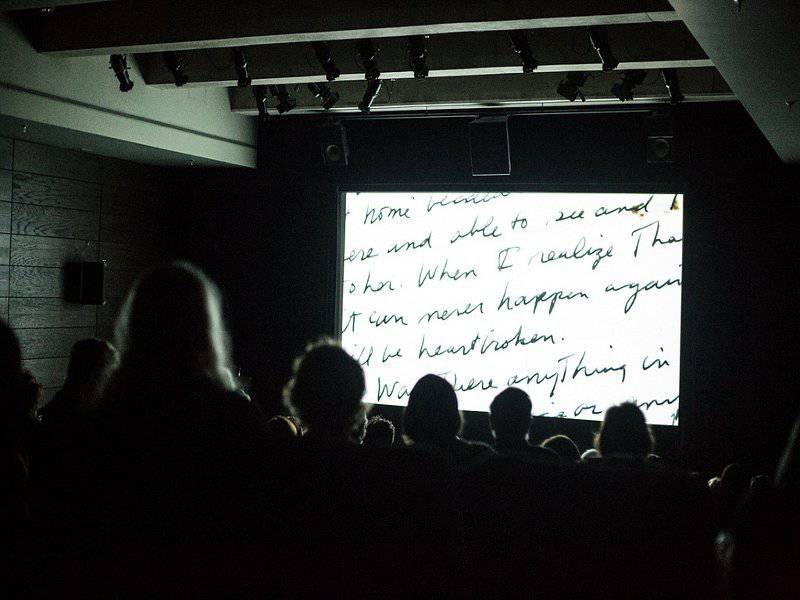 home
ere and able to see and
o her. When I realize Tha
it can never happen again
ill be heartbroken.
Was There anyThing in
or